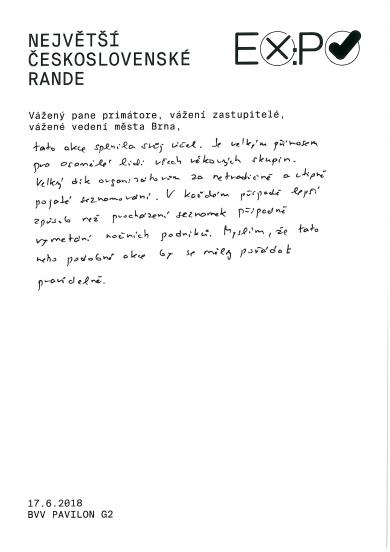 NEJVĚTŠÍ
ČESKOSLOVENSKÉ
RANDE
EXPO
Vážený pane primátore, vážení zastupitelé,
vážené vedení města Brna,
tato akce splnila svůj účel. Je velkým přínosem
pro osamělé lidi všech věkových skupin.
Velký dík organizátorům za netradičně a vtipně
pojaté seznamování. V každém případě lepší
způsob než procházení seznamek případně
vymetání nočních podniků. Myslím, že tato
nebo podobné akce by se měly pořádat
pravidelně.
17.6.2018
BVV PAVILON G2